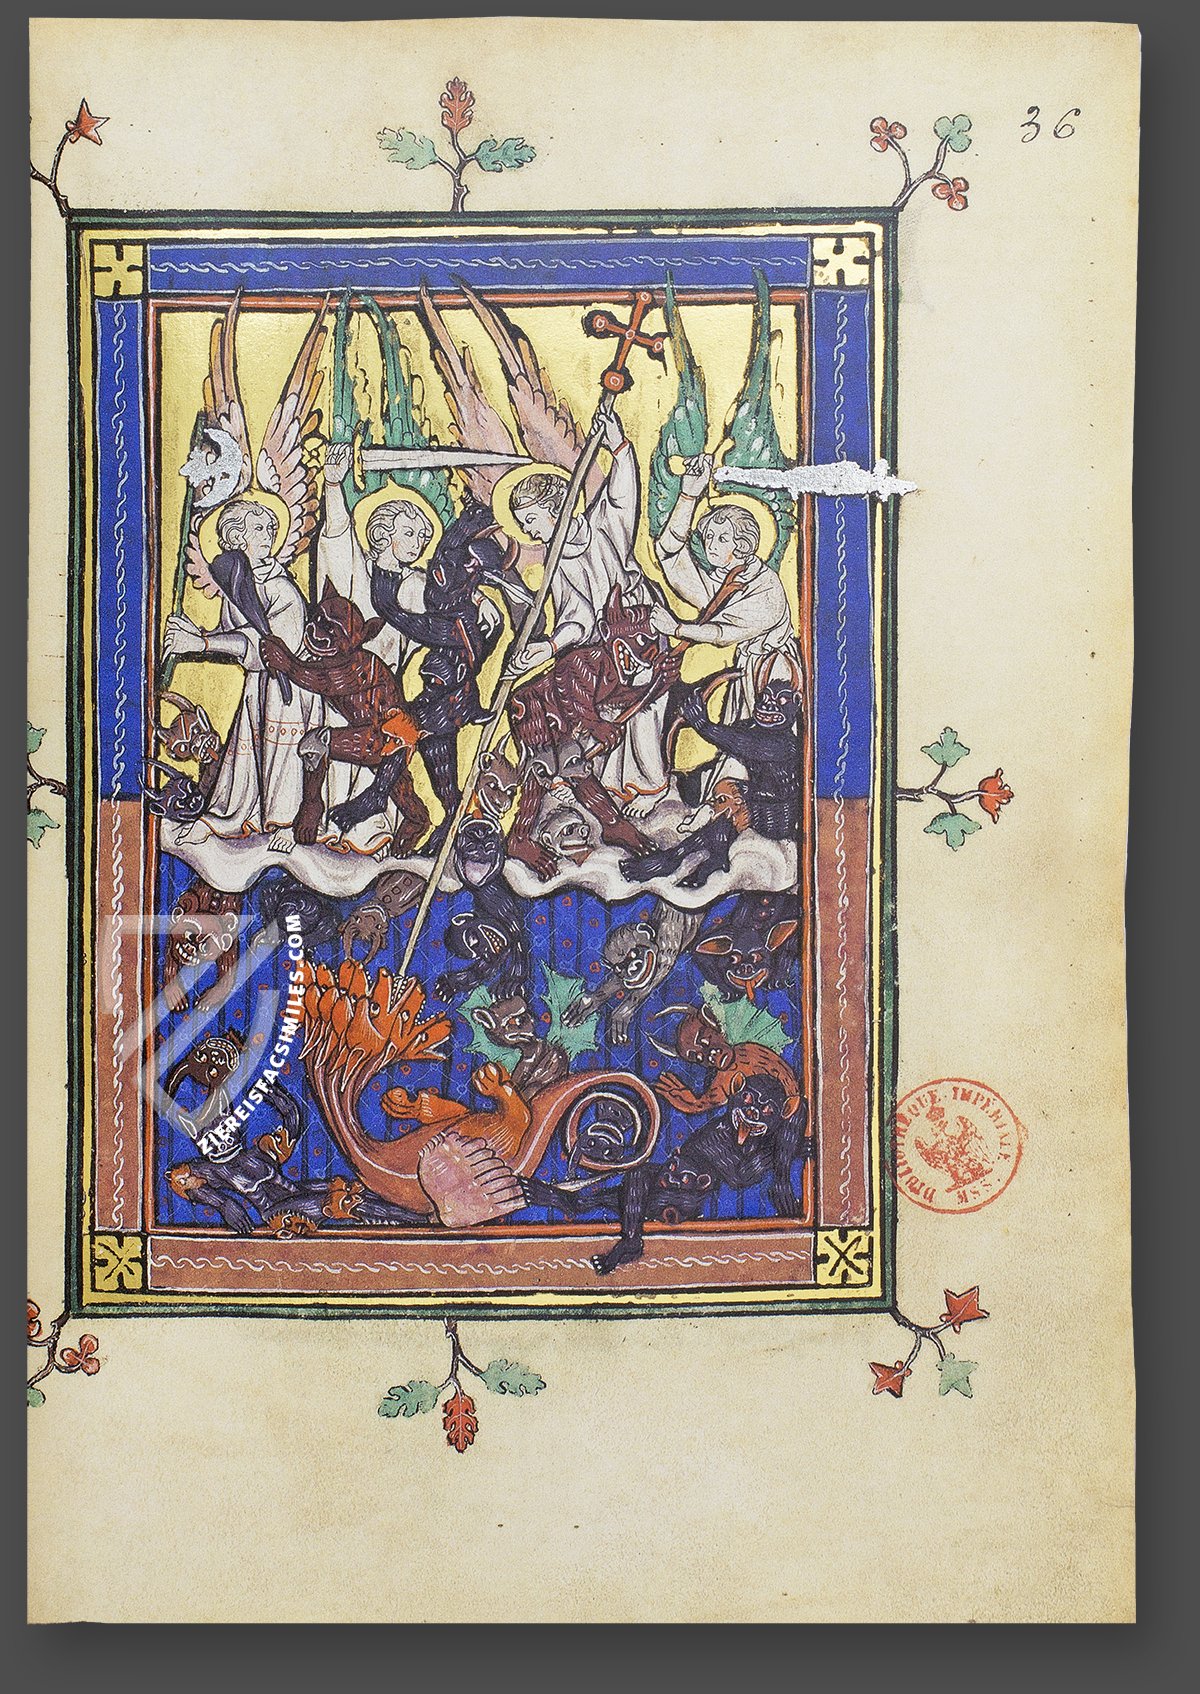 36
ZIEREISFACSIMILES.COM
BIBLIOTHÈQUE IMPÉRIALE
MSS.